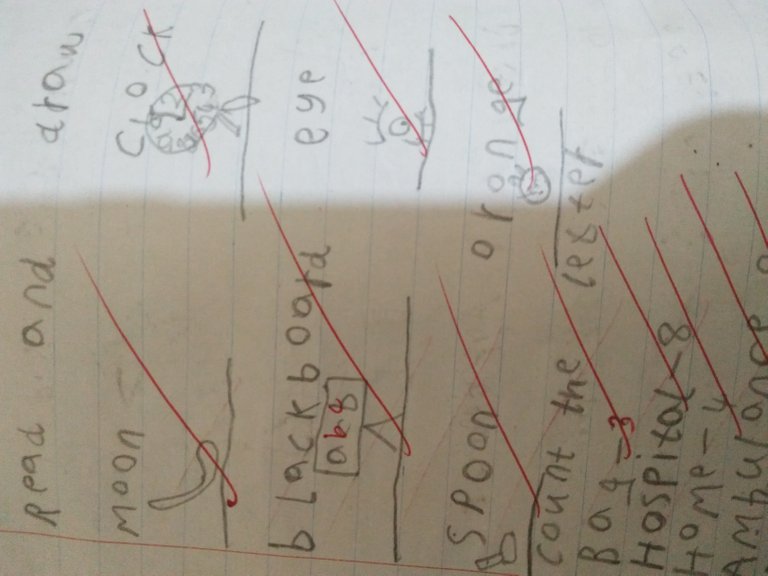 Read and draw
moon clock
blackboard eye
abg
spoon orange
count the lester
Bag-3
Hospital-8
Home-4
Ambulance